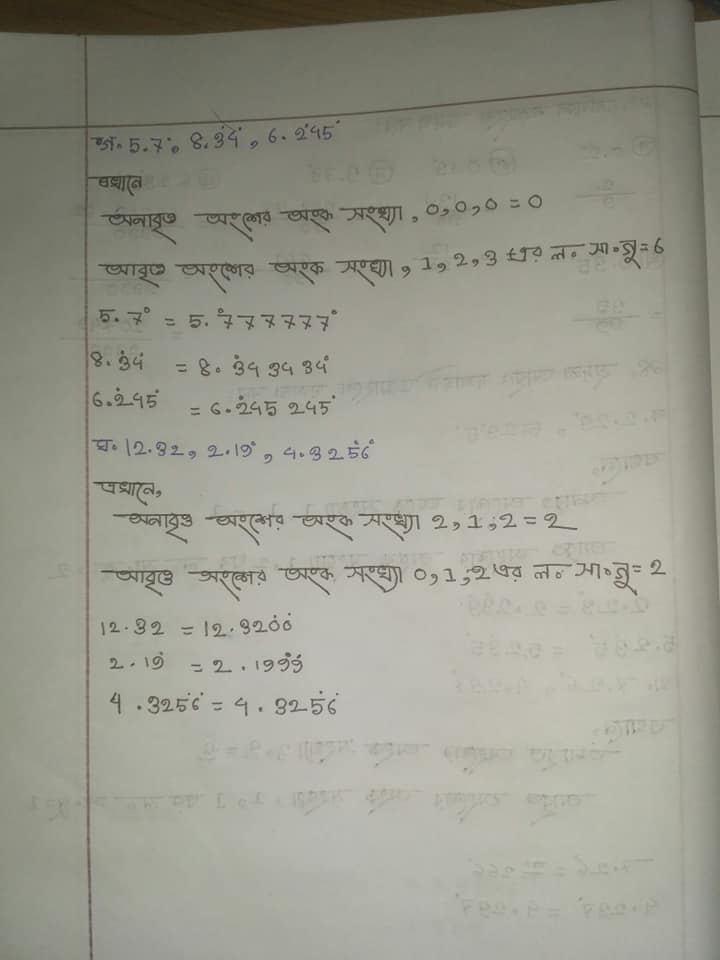 গ. 5.7̇, 8.3̇4̇, 6.2̇45̇
এখানে
অনাবৃত্ত অংশের অংক সংখ্যা, 0, 0, 0 = 0
আবৃত্ত অংশের অংক সংখ্যা, 1, 2, 3 এর ল. সা. গু = 6
5.7̇ = 5.7̇77777̇
8.3̇4̇ = 8.3̇43434̇
6.2̇45̇ = 6.2̇45245̇
ঘ. 12.32, 2.19̇, 4.325̇6̇
এখানে,
অনাবৃত্ত অংশের অংক সংখ্যা 2, 1, 2 = 2
আবৃত্ত অংশের অংক সংখ্যা 0, 1, 2 এর ল. সা. গু = 2
12.32 = 12.320̇0̇
2.19̇ = 2.199̇9̇
4.325̇6̇ = 4.325̇6̇